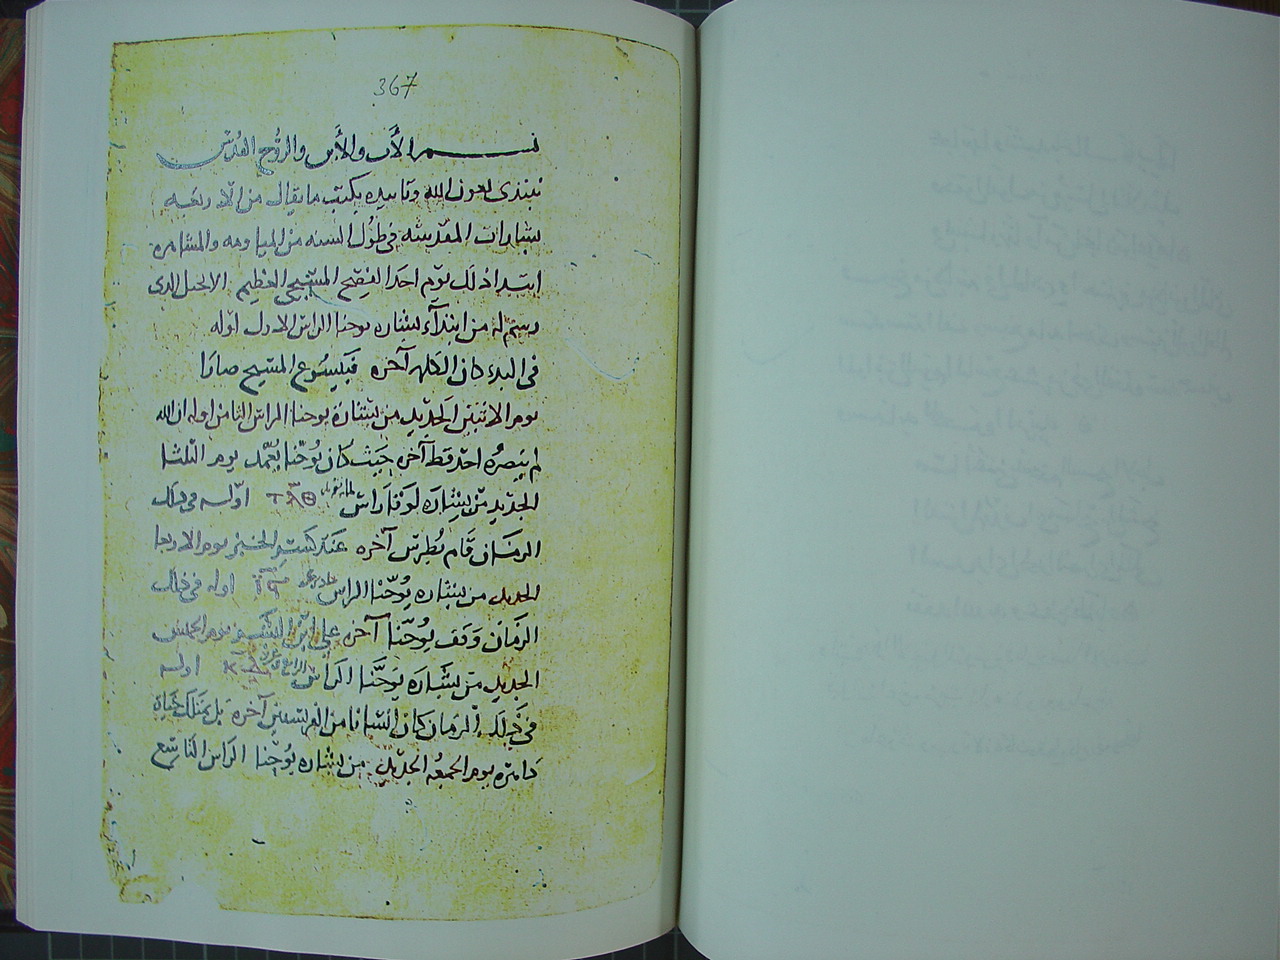 367
بسم الأب والأبن والرُّوح القدس
نبتدى بعون الله وتاييده بكتب ما يقال من الاربعه
بشارات المقدسه في طُول السنه من المياومه والمشاهره
ابتداذلك يوم احد الفصح المسيحي العظيم الانجيل الذي
برسم له من ابتدآء بشاره يوحنا الراس الاول اوله
في البدء كان الكلمه آخره فبيسُوع المسيح صارا
يوم الاثنين الجديد من بشارة يوحنا الراس الثامن اوله ان الله
لم يبصره احد قط آخره حيث كان يُوحنا يُعمد يوم الثلثا
الجديد من بشاره لوقا راس اوله في ذلك
الزمان قام بُطرس آخره عند كسر الخبز يوم الاربعا
الجديد من بشاره يُوحّنا الراس اوله في ذلك
الزمان وقف يُوحّنا آخره علي ابن البشر يوم الخميس
الجديد من بشاره يوحّنا الراس اوله
في ذلك الزمان كان انسانا من الفريسيين آخره بل يمتلك حياة
دايمه يوم الجمعه الجديد من بشاره يُوحّنا الراس التاسع